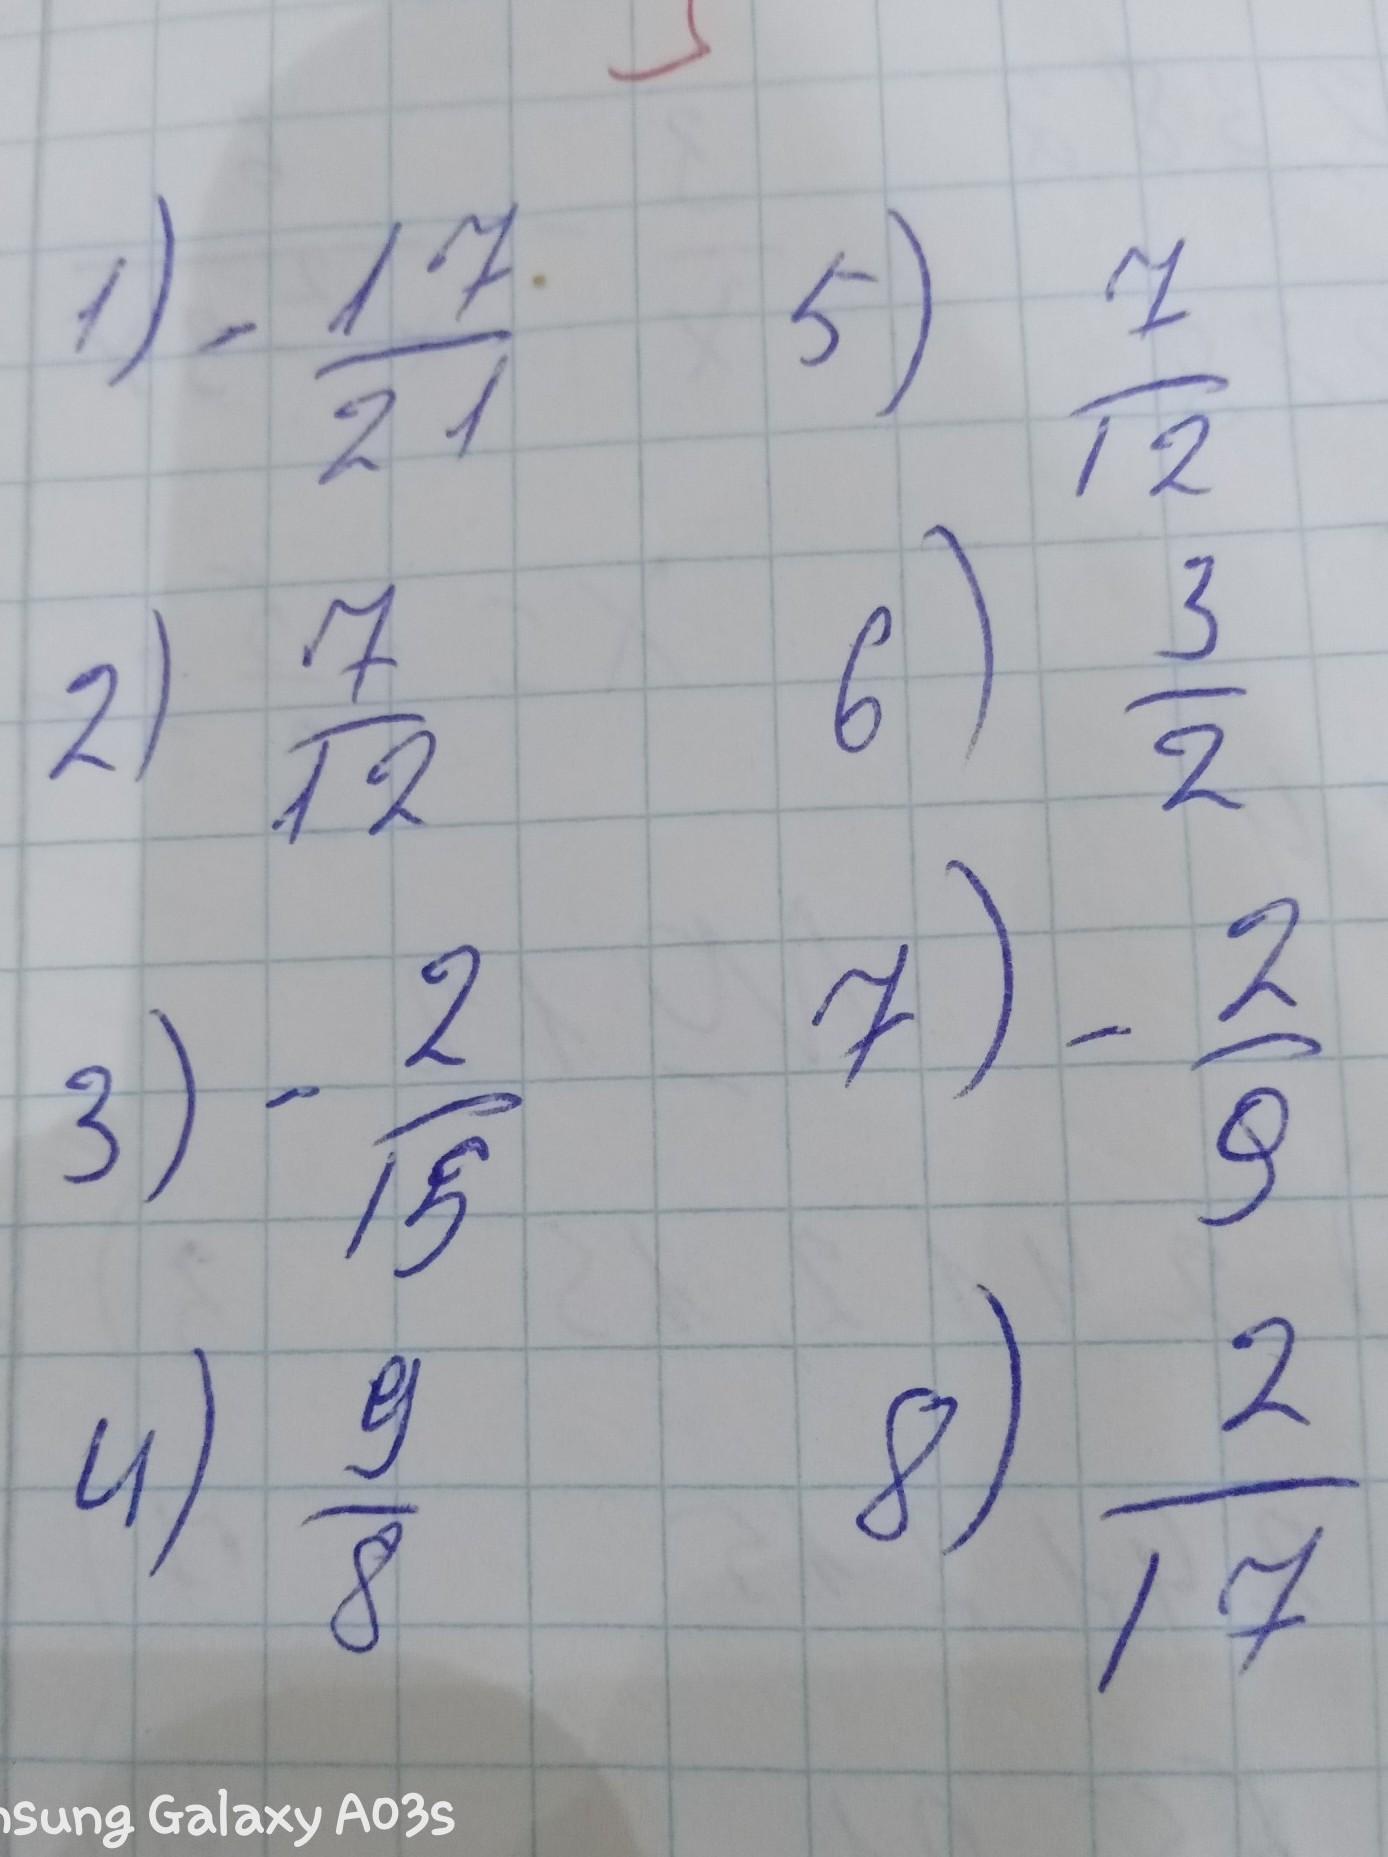 1) - 17/21
2) 7/12
3) - 2/15
4) 9/8
5) 7/12
6) 3/2
7) - 2/9
8) 2/17
nsung Galaxy A03s